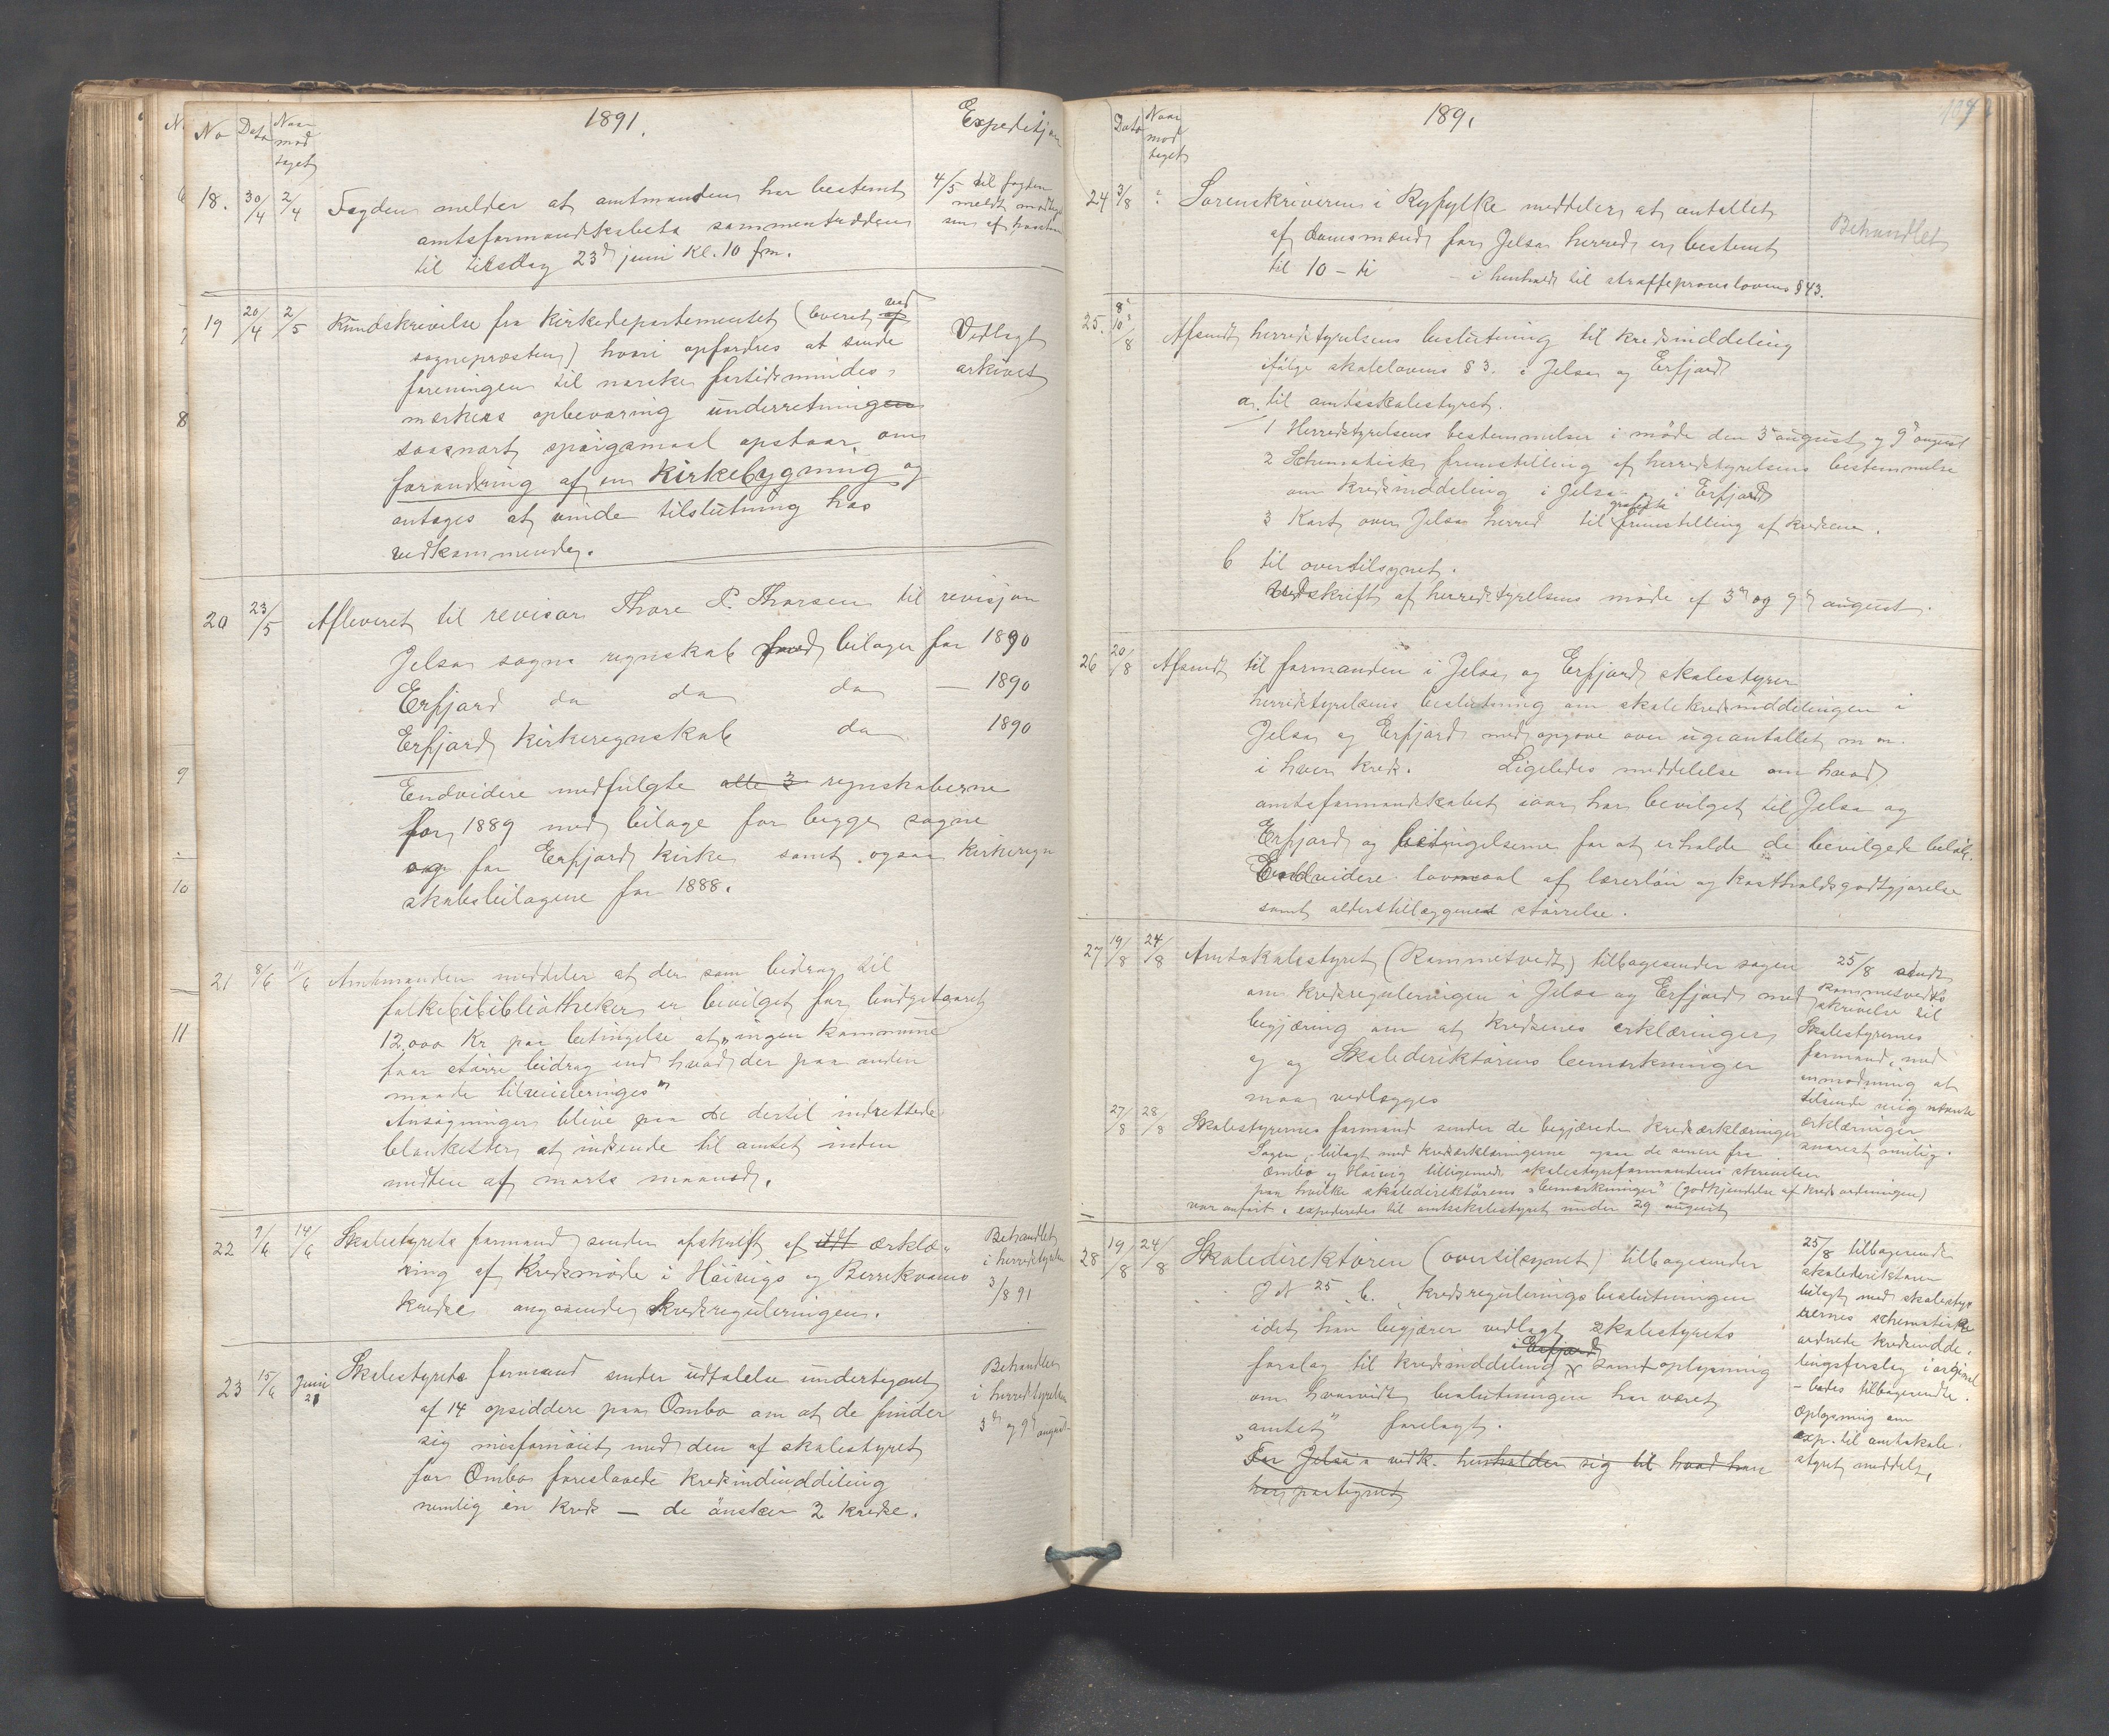 No Dato Naar mod taget 1891. Expeditjon
18. 30/4 2/4 Fogden melder at amtmanden har bestemt
amtsformandskabets sammentræden
til tirsdag 23de juni kl. 10 fm.
4/5 til fogden
meldt modtagel
sen af
19 20/4 2/5 Rundskrivelse fra Kirkedepartementet (leveret af ved
sognepræsten) hvori opfordres at sende
foreningen til norske fortidsmindes-
mærkers opbevaring underretningen
saasnart spørgsmaal opstaar om
forandring af en Kirkebygning og
antages at vinde tilslutning hos
vedkommende.
Vedlagt
arkivet
20 23/5 Afleveret til revisor Thore P. Thorsen til revisjon
Jelsa sogns regnskab med bilager for 1890
Erfjord do do do — 1890
Erfjord Kirkeregnskab do 1890
Endvidere medfulgte alle 3 regnskaberne
for 1889 med bilage for begge sogne
og for Erfjord Kirke samt ogsaa Kirkeregn
skabsbilagene for 1888.
21 8/6 11/6 Amtmanden meddeler at der som bidrag til
folkebibliotheker er bevilget for budgetaaret
12,000 Kr paa betingelse at "ingen kommune
faar større bidrag end hvad der paa anden
maade tilveiebringes"
Ansøgninger blive paa de dertil indrettede
blanketter at indsende til amtet inden
midten af marts maaned.
22 9/6 14/6 Skolestyrets formand sender afskrift af erklæ-
ring af Kredsmøde i Høivigs og Berrekvams
kredse angaaende kredsreguleringen.
Behandlet
i herredstyrelsen
3/8 91
23 15/6 Juni 21 Skolestyrets formand sender udtalelse undertegnet
af 14 opsiddere paa Ombo om at de finder
sig misfornøiet med den af skolestyret
for Ombo foreslaaede kredsinddeling
nemlig én kreds — de ønsker 2 kredse.
Behandlet
i herredstyrelsen
3de og 9de august
Dato Naar mod taget 1891
24 3/8 Sorenskriveren i Ryfylke meddeler at antallet
af domsmænd for Jelsa herred er bestemt
til 10 – ti i henhold til straffeproceslovens § 43.
Behandlet
25. 8/10/8 Afsendt herredstyrelsens beslutning til kredsinddeling
ifølge skolelovens § 3. i Jelsa og Erfjord
a. til amtsskolestyret.
1 Herredstyrelsens bestemmelser i møde den 3de august og 9de august
2 Schematisk fremstilling af herredstyrelsens bestemmelse
om kredsinddeling i Jelsa i Erfjord
3 Kart over Jelsa herred til grafiske fremstilling af kredsene.
b til overtilsynet.
Udskrift af herredstyrelsens møde af 3de og 9de august.
26 20/8 Afsendt til formanden i Jelsa og Erfjord skolestyrer
herredstyrelsens beslutning om skolekredsinddelingen i
Jelsa og Erfjord med opgave over ugeantallet m m.
i hver kreds. Ligeledes meddelelse om hvad
amtsformandskabet iaar har bevilget til Jelsa og
Erfjord og betingelserne for at erholde de bevilgede beløb.
Endvidere lovmaal af lærerløn og kostholdsgodtgjørelse
samt alderstillæggenes størrelse.
27 19/8 24/8 Amtsskolestyret (Rommetvedt) tilbagesender sagen
om kredsreguleringen i Jelsa og Erfjord med
begjæring om at kredsenes erklæringer
og og Skoledirektørens bemerkninger
maa vedlægges
25/8 sendt
Rommetvedts
skrivelse til
Skolestyrernes
formand, med
anmodning at
tilsende mig
erklæringer
snarest mulig.
27/8 28/8 Skolestyrernes formand sender de begjærede kredserklæringer
Sagen, bilagt med kredserklæringerne ogsaa de senere fra
Ombo og Høivig tilligemed skolestyreformandens skrivelser
paa hvilke skoledirektørens "bemerkninger" (godkjendelse af kredsordningen)
var anført, expederedes til amtsskolestyret under 29 august
28 19/8 24/8 Skoledirektøren (overtilsynet) tilbagesender
J N 25 b. kredsreguleringsbeslutningen
idet han begjærer vedlagt skolestyrets
forslag til kredsinddeling i Erfjord samt oplysning
om hvorvidt beslutningen har været
"amtet" forelagt.
For Jelsa's vedk. henholder sig til hvad han
har paategnet
25/8 tilbagesendt
skoledirektøren
bilagt med skolesty-
rernes schematiske
ordnede kredsindde-
lingsforslag i original
– bedes tilbagesendt.
Oplysning om
exp. til amtsskole-
styret meddelt.